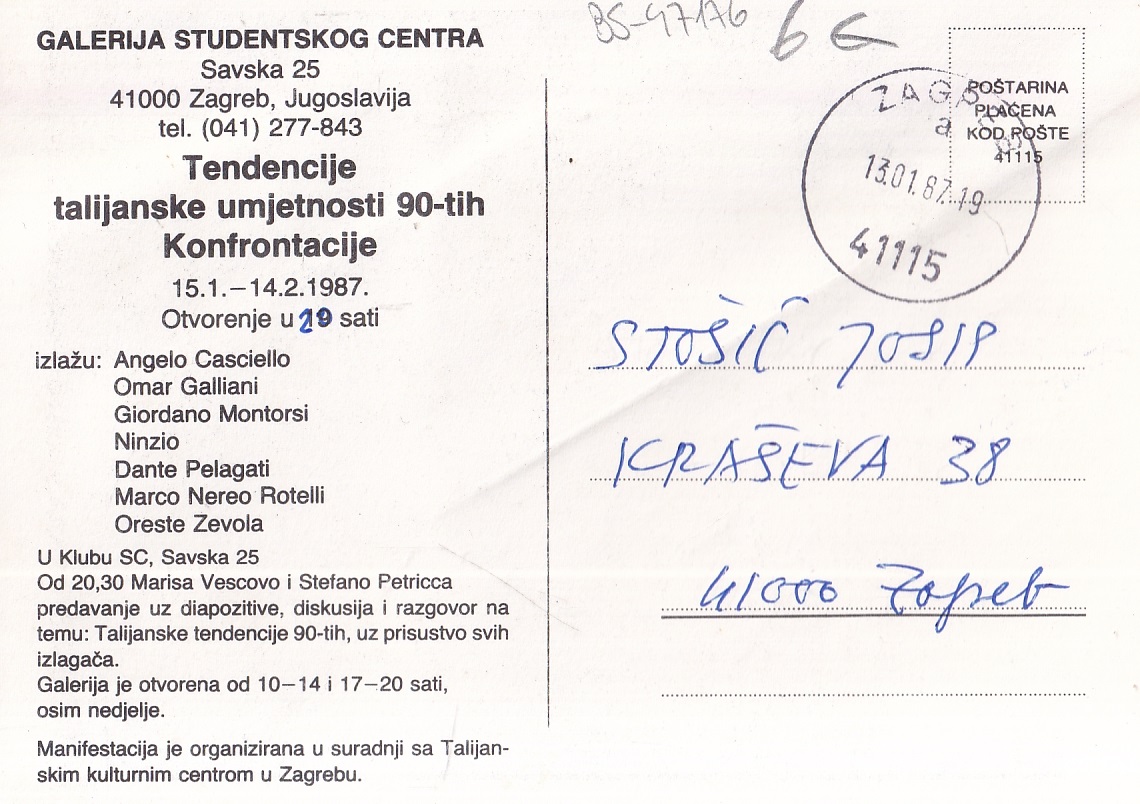 BS-97176
6 €
GALERIJA STUDENTSKOG CENTRA
Savska 25
41000 Zagreb, Jugoslavija
tel. (041) 277-843
Tendencije
talijanske umjetnosti 90-tih
Konfrontacije
15.1.–14.2.1987.
Otvorenje u 19 sati
izlažu: Angelo Casciello
Omar Galliani
Giordano Montorsi
Ninzio
Dante Pelagati
Marco Nereo Rotelli
Oreste Zevola
U Klubu SC, Savska 25
Od 20,30 Marisa Vescovo i Stefano Petricca
predavanje uz diapozitive, diskusija i razgovor na
temu: Talijanske tendencije 90-tih, uz prisustvo svih
izlagača.
Galerija je otvorena od 10–14 i 17–20 sati,
osim nedjelje.
Manifestacija je organizirana u suradnji sa Talijan-
skim kulturnim centrom u Zagrebu.
POŠTARINA
PLAĆENA
KOD POŠTE
41115
ZAGREB
a
13.01.87.19
41115
STOŠIĆ JOSIP
KRAŠEVA 38
41000 Zagreb